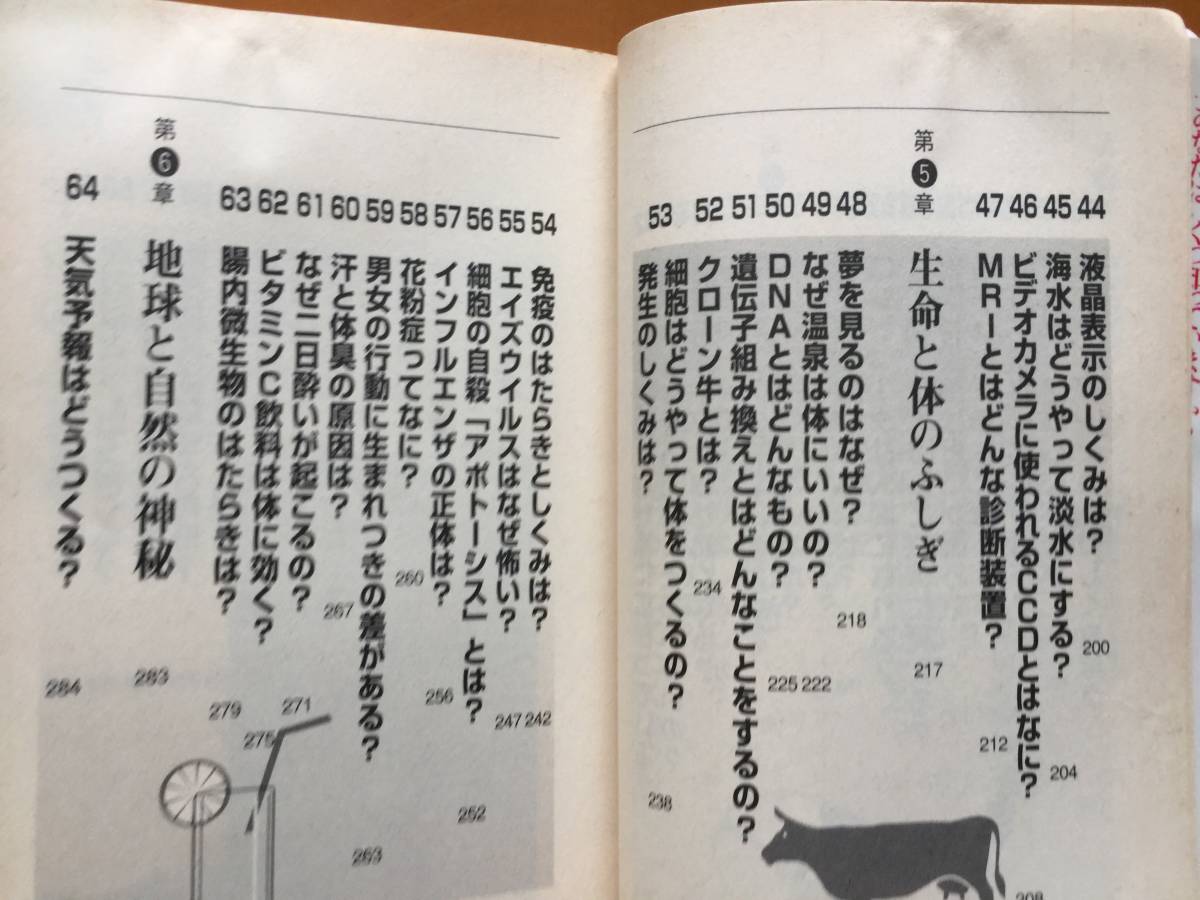 44 液晶表示のしくみは? 200
45 海水はどうやって淡水にする? 204
46 ビデオカメラに使われるCCDとはなに? 208
47 MRIとはどんな診断装置? 212
第5章 生命と体のふしぎ 217
48 夢を見るのはなぜ? 218
49 なぜ温泉は体にいいの? 222
50 DNAとはどんなもの? 225
51 遺伝子組み換えとはどんなことをするの?
52 クローン牛とは? 234
53 細胞はどうやって体をつくるの?
発生のしくみは? 238
54 免疫のはたらきとしくみは? 242
55 エイズウイルスはなぜ怖い? 247
56 細胞の自殺「アポトーシス」とは? 252
57 インフルエンザの正体は? 256
58 花粉症ってなに? 260
59 男女の行動に生まれつきの差がある? 263
60 汗と体臭の原因は? 267
61 なぜ二日酔いが起こるの? 271
62 ビタミンC飲料は体に効く? 275
63 腸内微生物のはたらきは? 279
第6章 地球と自然の神秘 283
64 天気予報はどうつくる? 284